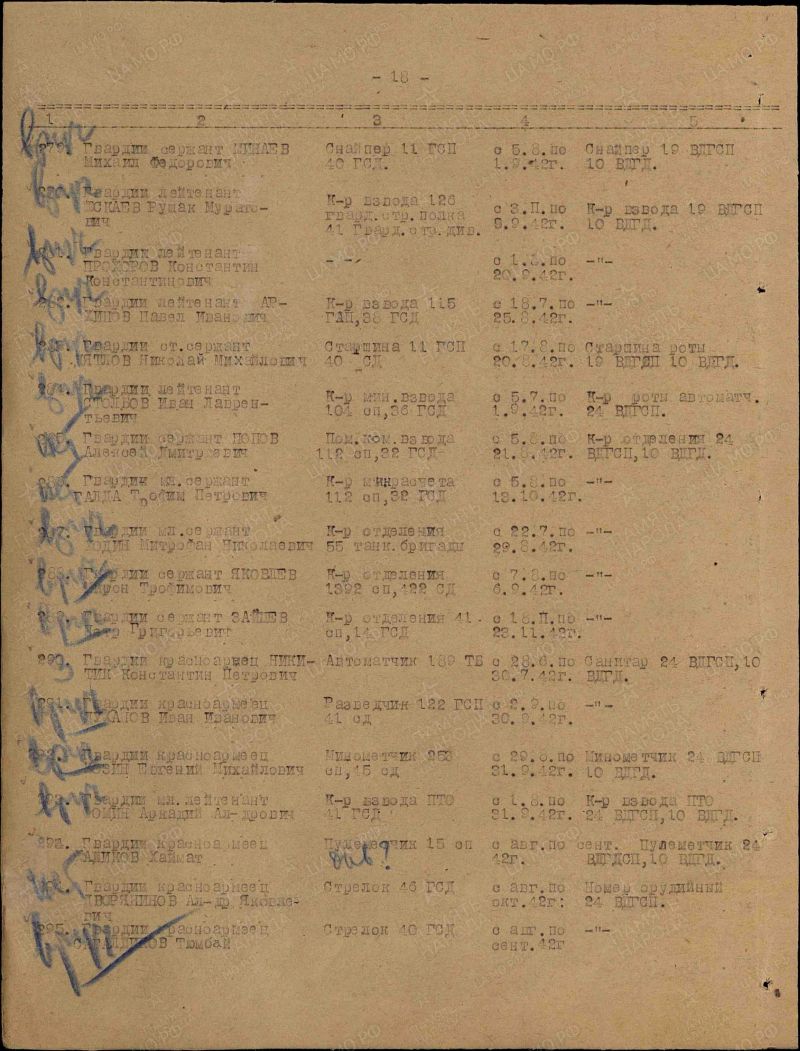 - 18 -
1 2 3 4 5
Гвардии сержант МИНАЕВ Снайпер 11 ГСП с 5.8.по Снайпер 19 ВДГСП
Михаил Федорович 40 ГСД. 1.9.42г. 10 ВДГД.
Гвардии лейтенант К-р взвода 126
Рушак Мурато- гвард.стр.полка с 3.П.по К-р взвода 19 ВДГСП
вич 41 Гвард.стр.див. 8.9.42г. 10 ВДГД.
Гвардии лейтенант - "- с 1.8.по -"-
ПРОХОРОВ Константин 20.9.42г.
Константинович
Гвардии лейтенант АР- К-р взвода 115 с 18.7.по -"-
ХИПОВ Павел Иванович ГАП,38 ГСД 25.8.42г.
Гвардии ст.сержант Старшина 11 ГСП с 17.8.по Старшина роты
Николай Михайлович 40 СД 20.8.42г. 19 ВДГСП 10 ВДГД.
Гвардии лейтенант К-р мин.взвода с 5.7.по К-р роты автоматч.
СТОЛБОВ Иван Лаврен- 104 сп,36 ГСД 1.9.42г. 24 ВДГСП.
тьевич
Гвардии сержант ПОПОВ Пом.ком.взвода с 5.8.по К-р отделения 24
Алексей Дмитриевич 112 сп,32 ГСД 21.8.42г. ВДГСП,10 ВДГД.
Гвардии мл.сержант К-р минрасчета с 5.8.по -"-
ГАЛДА Трофим Петрович 112 сп,32 ГСД 13.10.42г.
Гвардии мл.сержант К-р отделения с 22.7.по -"-
Митрофан Николаевич 55 танк.бригады 29.8.42г.
Гвардии сержант ЯКОВЛЕВ К-р отделения с 7.8.по -"-
Трофимович 1392 сп,422 СД 6.9.42г.
Гвардии сержант ЗАЙЦЕВ К-р отделения 41 с 18.П.по -"-
Петр Григорьевич сп,14 ГСД 23.11.42г.
290. Гвардии красноармеец НИКИ- Автоматчик 189 ТБ с 28.6.по Санитар 24 ВДГСП,10
ТИН Константин Петрович 30.7.42г. ВДГД.
291. Гвардии красноармеец Разведчик 122 ГСП с 2.9.по -"-
Иван Иванович 41 сд 30.9.42г.
Гвардии красноармеец Минометчик 253 с 29.8.по Минометчик 24 ВДГСП
Евгений Михайлович сп,45 сд 31.9.42г. 10 ВДГД.
Гвардии мл.лейтенант К-р взвода ПТО с 1.8.по К-р взвода ПТО
Аркадий Ал-дрович 41 ГСД 31.9.42г. 24 ВДГСП,10 ВДГД.
Гвардии красноармеец Пулеметчик 15 сп с авг.по сент. Пулеметчик 24
Хаймат 42г. ВДГДСП,10 ВДГД.
Гвардии красноармеец Стрелок 46 ГСД с авг.по Номер орудийный
ДВОРЯНИНОВ Ал-др Яковле- окт.42г: 24 ВДГСП.
вич
295. Гвардии красноармеец Стрелок 40 ГСД с авг.по -"-
Тюмбай сент.42г